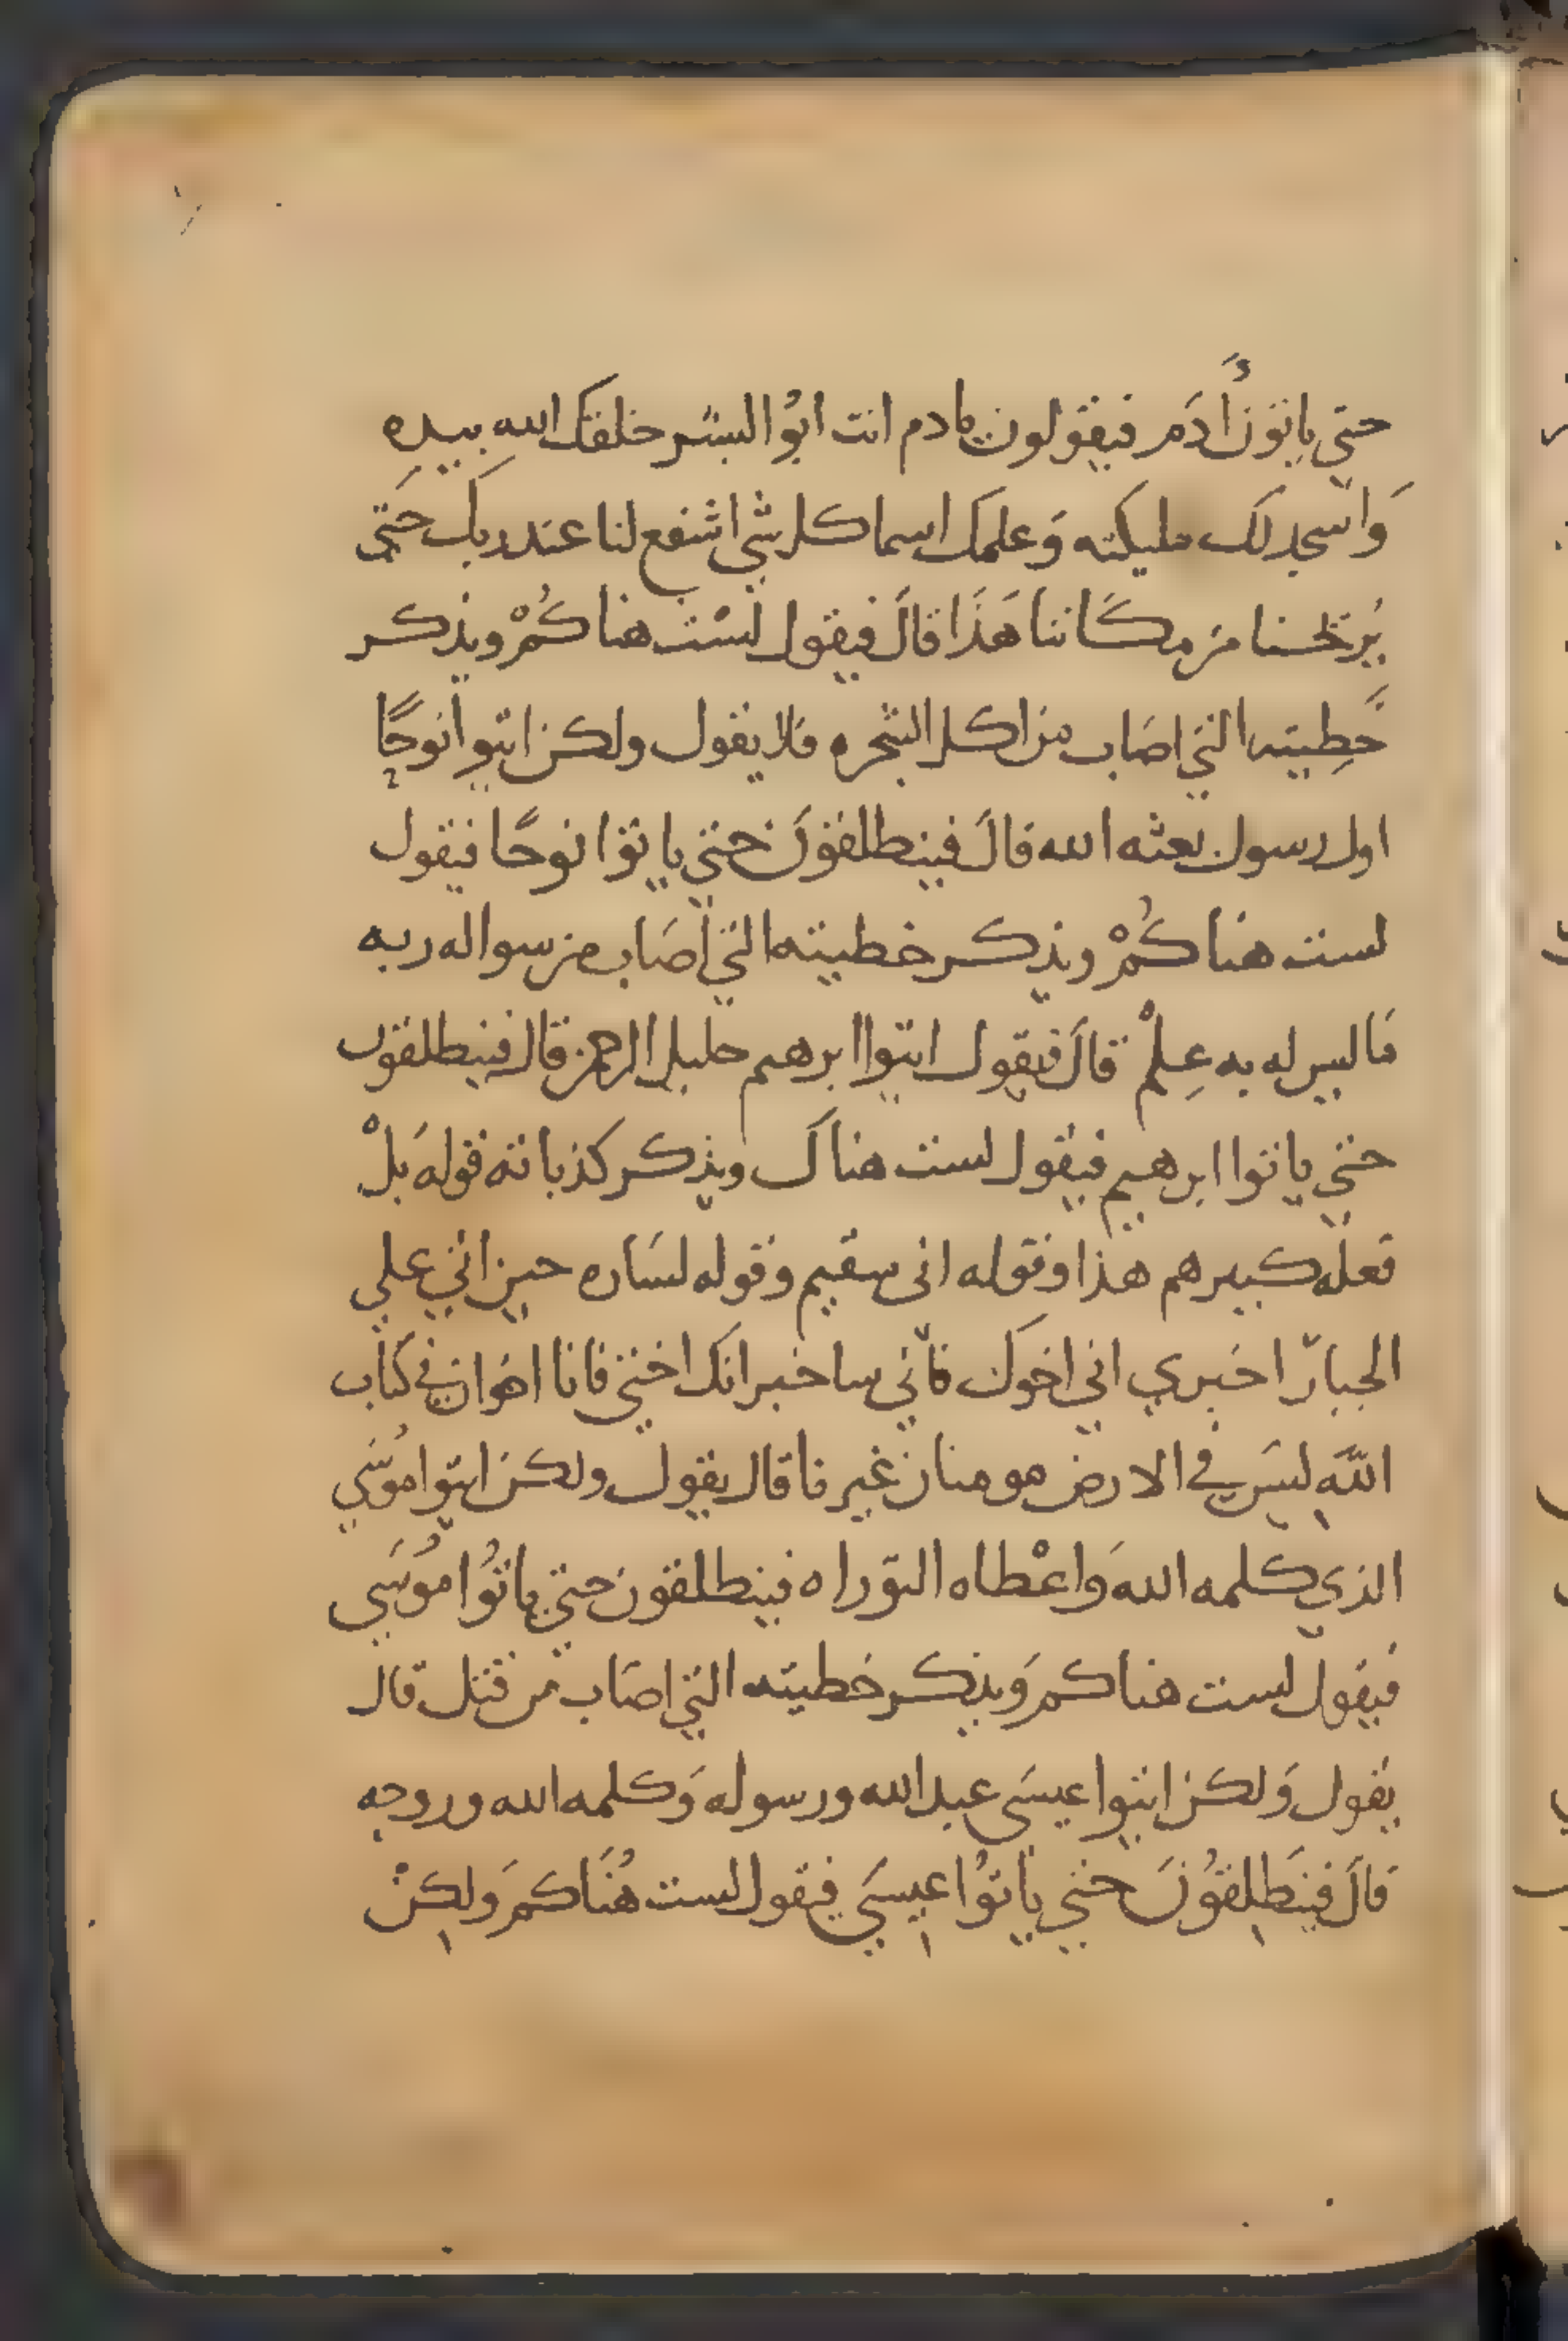 حتي ياتون اۤدَم فيقولون يادم انت ابوُا البشر خلقك الله بيده
وَاسجد لك مليكته وَعلمك اسما كل شي اشفع لنا عند ربك حَتي
يُريحنا من مكاننا هَذَا قالَ فيقول لسْت هناكُمْ ويذكر
خَطِيته التي اصَاب من اكل الشجره قلا يقول ولكن ايتوا نوحًا
اول رسول بعثه الله قالَ فينطلقوَن حتي ياتوا نوحًا فيقول
لست هناكُمْ ويذكر خطيته التي اصَاب من سواله ربه
مَا ليس له به عِلمْ قالَ فيقول ايتوا ابرهيم خليل الرحمن قال فينطلقون
حتي ياتوا ابرهيم فيقول لست هناك ويذكر كذباته قوله بَلْ
فعله كبيرهم هذا وقوله اني سقيم وقوله لسَاره حين اتي علي
الجبارّ اخبري اني اخوَك فاني ساخبر انك اختي فانا اخوان في كتاب
اللَّه ليسَ في الارض مومنان غير نا قال يقول ولكن ايتوا موُسَي
الذي كلمه الله وَاعْطاه التوراه فينطلقون حتي ياتوُا موُسَي
فيقول لست هناكم وَيذكر خطيته التي اصَاب من قتل قال
يقول وَلكن ايتوا عيسَي عبد الله ورسوله وَكلمه الله وروحه
قالَ فينطَلِقوُنَ حتي ياتوُا عِيسَي فيقول لست هُنَاكم وَلكِنْ